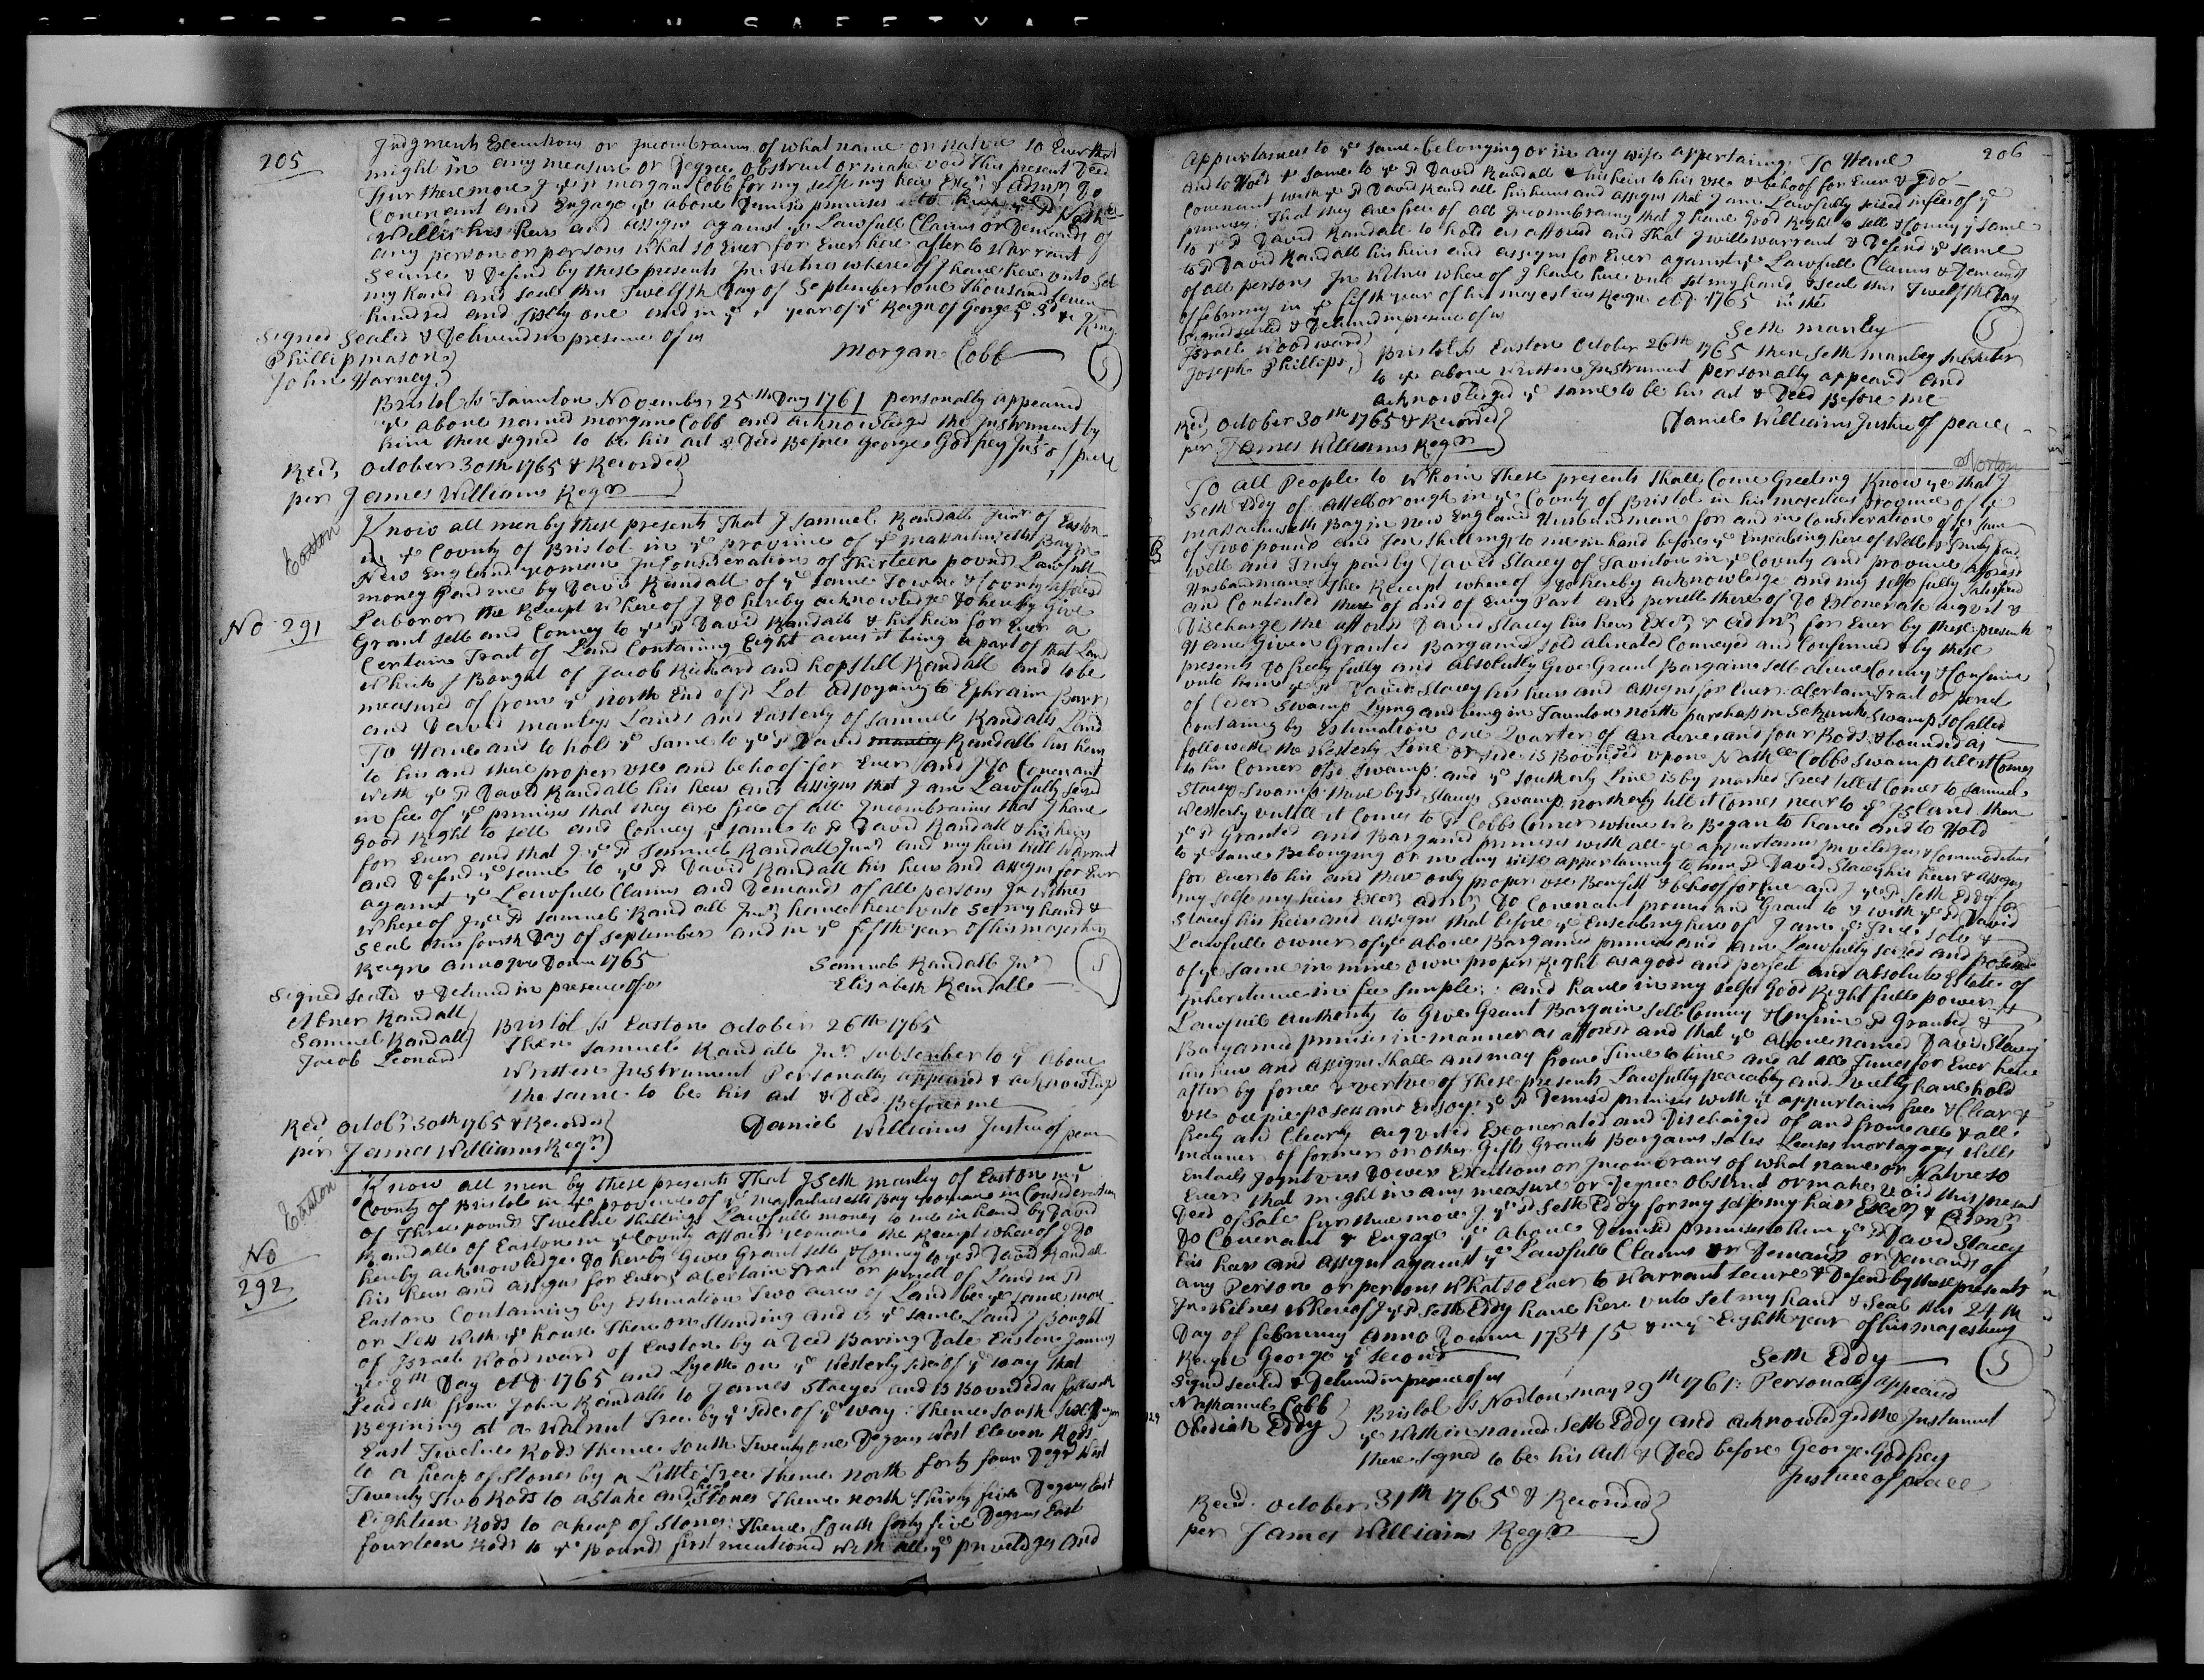 205
Judgments Executions or Incombrances of what name or Nature so Ever that
might in any measure or Degree obstruct or make void this present Deed
Furthermore I ye sd morgan Cobb for my selfe my heirs Exers & Admrs Do
Covenant and Engage ye above Demised premises to him ye sd Nathll
Willis his heirs and assigns against ye Lawfull Claims or Demands of
any person or persons what so Ever for Ever here after to Warrant
Secure & Defend by these presents In Witnes where of I have here unto Set
my hand and seal this Twelfth Day of September one Thousand seven
hundred and sixty one and in ye year of ye Reign of George ye 3d King
Signed Sealed & Delivered in presence of us
Morgan Cobb
S
Phillip mason
John Harney
Bristol Ss Taunton November 25th Day 1761 personally appeared
ye above named morgan Cobb and acknowledged the Instrument by
him there signed to be his act & Deed Before George Godfrey Just of peace
Recd October 30th 1765 & Recorded
per James Williams Regr
Easton
Know all men by these presents That I Samuel Randall Junr of Easton
in ye County of Bristol in ye province of ye Massachusetts Bay in
New England yeoman In Consideration of Thirteen pounds Lawfull
money paid me by David Randall of ye same Town & County aforesd
No 291
Laboror the Receipt where of I Do hereby acknowledge Do hereby Give
Grant sell and Convey to ye sd David Randall & his heirs for Ever a
Certain Tract of Land Containing Eight acres it being a part of that Land
which I Bought of Jacob Rickard and hopstill Randall and to be
measured of from ye North End of sd Lot adjoyning to Ephraim Burr
and David manleys Lands and Easterly of Samuel Randalls Land
To Have and to hold ye same to ye sd David manley Randall his heirs
to his and there proper uses and behoof for Ever and I Do Covenant
with ye sd David Randall his heirs and assigns that I am Lawfully seized
in fee of ye premises that they are free of all Incombrances that I have
good Right to sell and Convey ye same to sd David Randall & his heirs
for Ever and that I ye sd Samuel Randall Junr and my heirs will Warrant
and Defend ye same to ye sd David Randall his heirs and assigns for Ever
against ye Lawfull Claims and Demands of all persons In Witnes
Where of I ye sd Samuel Randall Junr have here unto Set my hand &
Seal this fourth Day of September and in ye fifth year of his majesties
Reign annoque Domini 1765
Samuel Randall Junr
S
Signed sealed & Delivered in presence of us
Elisabeth Randall
Abner Randall
Samuel Randall
Jacob Leonard
Bristol Ss Easton October 26th 1765
Then Samuel Randall Junr subscriber to ye above
Written Instrument Personally appeared & acknowledged
the same to be his act & Deed Before me
Recd Octobr 30th 1765 & Recorded
Daniel Williams Justice of peace
per James Williams Regr
Easton
Know all men by these presents That I Seth manley of Easton in ye
County of Bristol in ye province of ye Massachusetts Bay yeoman in Consideration
of Three pounds Twelve Shillings Lawfull money to me in hand by David
Randall of Easton in ye County aforesd yeoman the Receipt where of I Do
No
hereby acknowledge Do hereby Give Grant sell & Convey to ye sd David Randall
292
his heirs and assigns for Ever a Certain Tract or parcell of Land in sd
Easton Containing by Estimation Two acres of Land be ye same more
or Less with ye house There on standing and is ye same Land I Bought
of Israel Woodward of Easton by a Deed Baring Date Easton January
ye 8th Day AD 1765 and Lyeth on ye Westerly side of ye way that
Leadeth from John Randalls to James Stacyes and is Bounded as followeth
Begining at a Walnut Tree by ye side of ye way: thence South
East Twelve Rods thence south Twenty one Degrees West Eleven Rods
to a heap of stones by a Little Tree Thence North forty four Degrs West
Twenty Two Rods to a stake and heap Stones Thence north Thirty five Degrees East
Eighteen Rods to a heap of stones: thence South forty five Degrees East
fourteen Rods to ye Bounds first mentioned with all ye priviledges and
206
appurtenances to ye same belonging or in any wise appertaining To Have
and to Hold ye same to ye sd David Randall & his heirs to his use & behoof for Ever & I do
Covenant with ye sd David Randall his heirs and assigns that I am Lawfully seized in fee of ye
premises: That they are free of all Incombrances that I have Good Right to sell & Convey ye same
to ye sd David Randall to hold as afforesd and That I will warrant & Defend ye same
to sd David Randall his heirs and assigns for Ever against ye Lawfull Claims & Demands
of all persons In Witnes where of I have here unto set my hand & seal this Twelfth Day
of february in ye fifth year of his majesties Reign AD 1765
Signed sealed & Delivered in presence of us
Seth manley
S
Israel Woodward
Joseph Phillips
Bristol Ss Easton October 26th 1765 then Seth manley subscriber
to ye above written Instrument personally appeared and
acknowledged ye same to be his act & Deed Before me
Recd October 30th 1765 & Recorded
Daniel Williams Justice of peace
per James Williams Regr
Norton
To all People to Whom these presents shall Come Greeting Know ye that I
Seth Eddy of Attelborough in ye County of Bristol in his majesties province of ye
massachusetts Bay in New England Husbandman for and in Consideration of ye sum
of Two pounds and Ten shillings to me in hand before ye Ensealing here of Well & Truly paid
well and Truly paid by David Stacey of Taunton in ye County and province afforesd
Husbandman The Receipt where of I Do hereby acknowledge and my selfe fully satisfied
and Contented there of and of Every Part and percell there of Do Exonerate acquit &
Discharge the afforesd David Stacey his heirs Exers & Admrs for Ever by these presents
Have Given Granted Bargained sold aliened Conveyed and Confirmed & by these
presents Do freely fully and absolutely Give Grant Bargain sell aliene Convey & Confirme
unto him ye sd David Stacey his heirs and assigns for Ever a Certain Tract or percel
of Ceder Swamp Lying and being in Taunton North purchass in Swamp so Called
Containing by Estimation one Quarter of an acre and four Rods & bounded as
followeth the Westerly Line or side is Bounded upon Nathll Cobbs Swamp till it Comes
to his Corner of sd Swamp: and ye southerly Line is by marked Trees till it Comes to Samuel
Stacey Swamp thence by sd Staceys Swamp northerly till it Comes near to ye Island then
Westerly untill it Comes to sd Cobbs Corner where we Began to have and to Hold
ye sd granted and Bargained premises with all ye appurtances priviledges & Commodities
to ye same Belonging or in any wise appertaining to him sd David Stacey his heirs & assigns
for Ever to his and there only proper use Benefitt & behoof for Ever and I ye sd Seth Eddy for
my selfe my heirs Exers admrs Do Covenant promis and Grant to & with ye sd David
Stacey his heirs and assigns that before ye Ensealing here of I am ye True sole &
Lawfull owner of ye above Bargained premises and am Lawfully seized and possessed
of ye same in mine own proper Right as a good and perfect and absolute Estate of
Inheritance in fee simple: and have in my selfe Good Right full power &
Lawfull Authority to Give Grant Bargain sell Convey & Confirm sd Granted &
Bargained premises in manner as afforesd and that ye above named David Stacey
his heirs and assigns shall and may from Time to time and at all Times for Ever here
after by force & vertue of These presents Lawfully peacably and Quietly have hold
use occupie possess and Enjoy ye sd Demised premises with ye appurtains free & Clear &
freely and Clearly acquitted Exonerated and Discharged of and from all & all
manner of former or other Gifts Grants Bargains sales Leases mortgages Wills
Entails Joyntures Dowers Exicutions or Incombrances of what name or Nature so
Ever that might in any measure or Degree obstruct or make void this present
Deed of Sale furthermore I ye sd Seth Eddy for my selfe my heirs Exers & Admrs
Do Covenant & Engage ye above Demised premises to him ye sd David Stacey
his heirs and assigns against ye Lawfull Claims or Demands or Demands of
any Person or persons What so Ever to Warrant secure & Defend by these presents
In Witnes where of I ye sd Seth Eddy have here unto set my hand & Seal this 24th
Day of february Anno Domini 1734/5 & in ye Eighth year of his majesties
Reign George ye Second
Seth Eddy
S
Signed sealed & Delivered in presence of us
Nathaniel Cobb
Obediah Eddy
Bristol Ss Norton may 29th 1761: Personally appeared
ye Within named Seth Eddy and acknowledged the Instrument
there signed to be his Act & Deed before George Godfrey
Justice of peace
Recd. October 31th 1765 & Recorded
per James Williams Regr